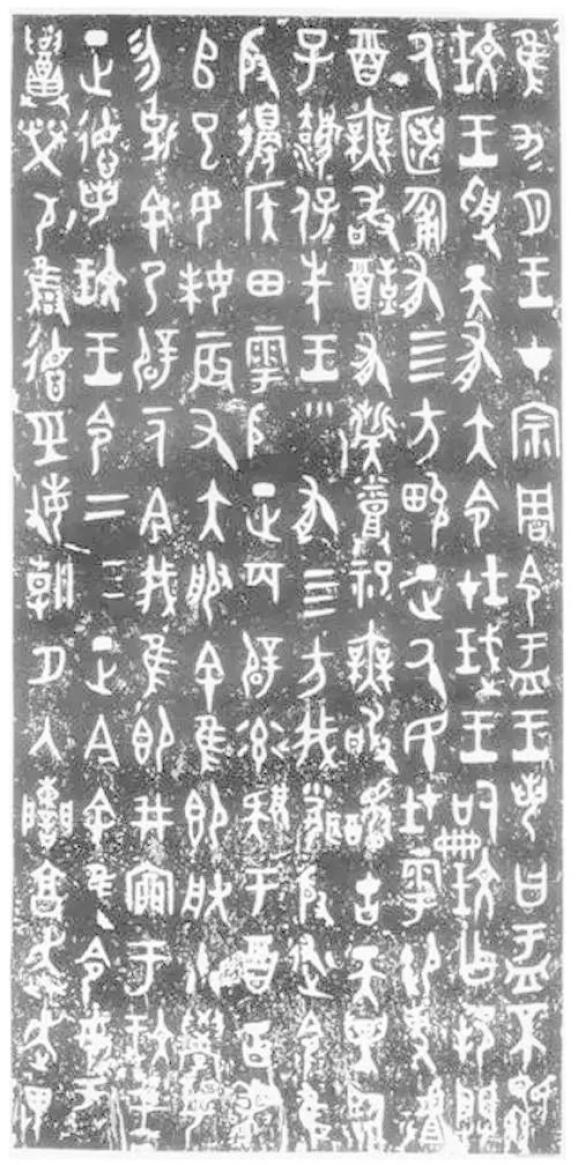 隹九月王才宗周令盂王若曰盂不顯
玟王受天有大令在珷王嗣玟乍邦闢
厥匿匍有四方畯正厥民在雩御事䖒
酉無敢酖有烝祀無敢古天異臨
子灋保先王有四方我聞殷述令隹
殷邊侯田雩殷正百辟率肄于酉古喪
師巳女妹辰又大服余隹即朕小學女
勿剋余乃辟一人今我隹即井㐭于玟王
正德若玟王令二三正今余隹令女盂
召榮敬雝德巠敏朝夕入讕享奔走畏